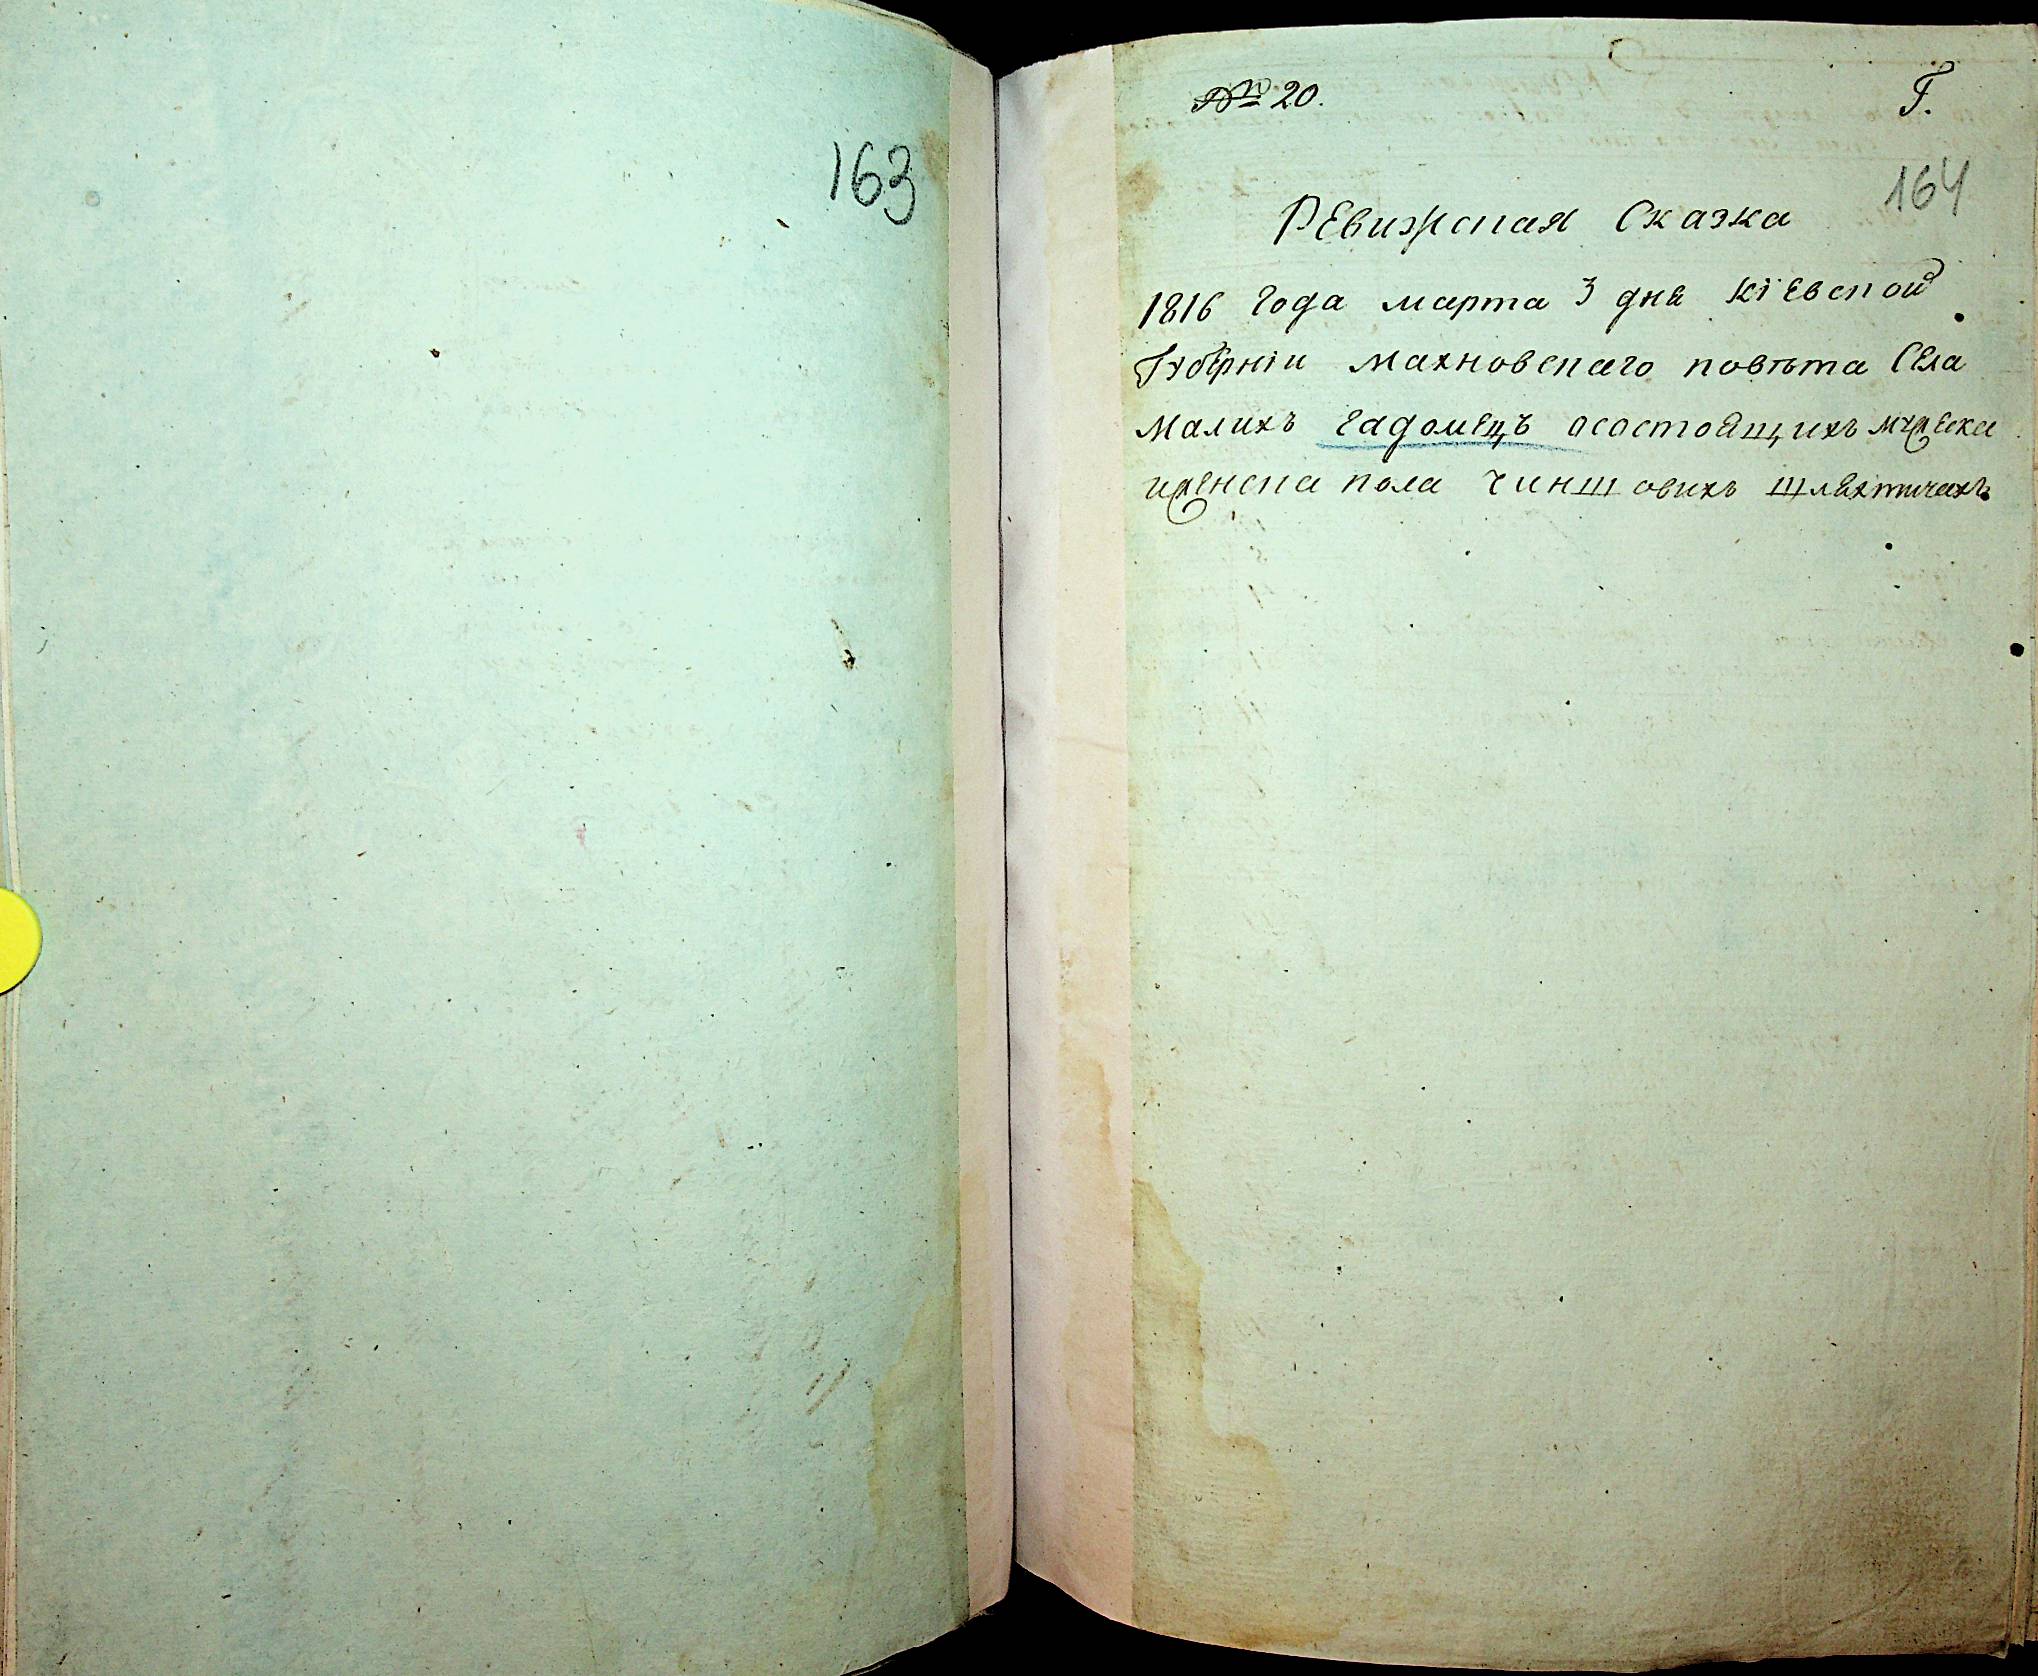 163
№ 20.
Г.
164
Ревижская Сказка
1816 Года марта 3 дня Кіевской
Губерніи Махновскаго повѣта Села
Малихъ Гадомецъ осостоящихъ мужеска
иженска пола Чиншовихъ Шляхтичахъ